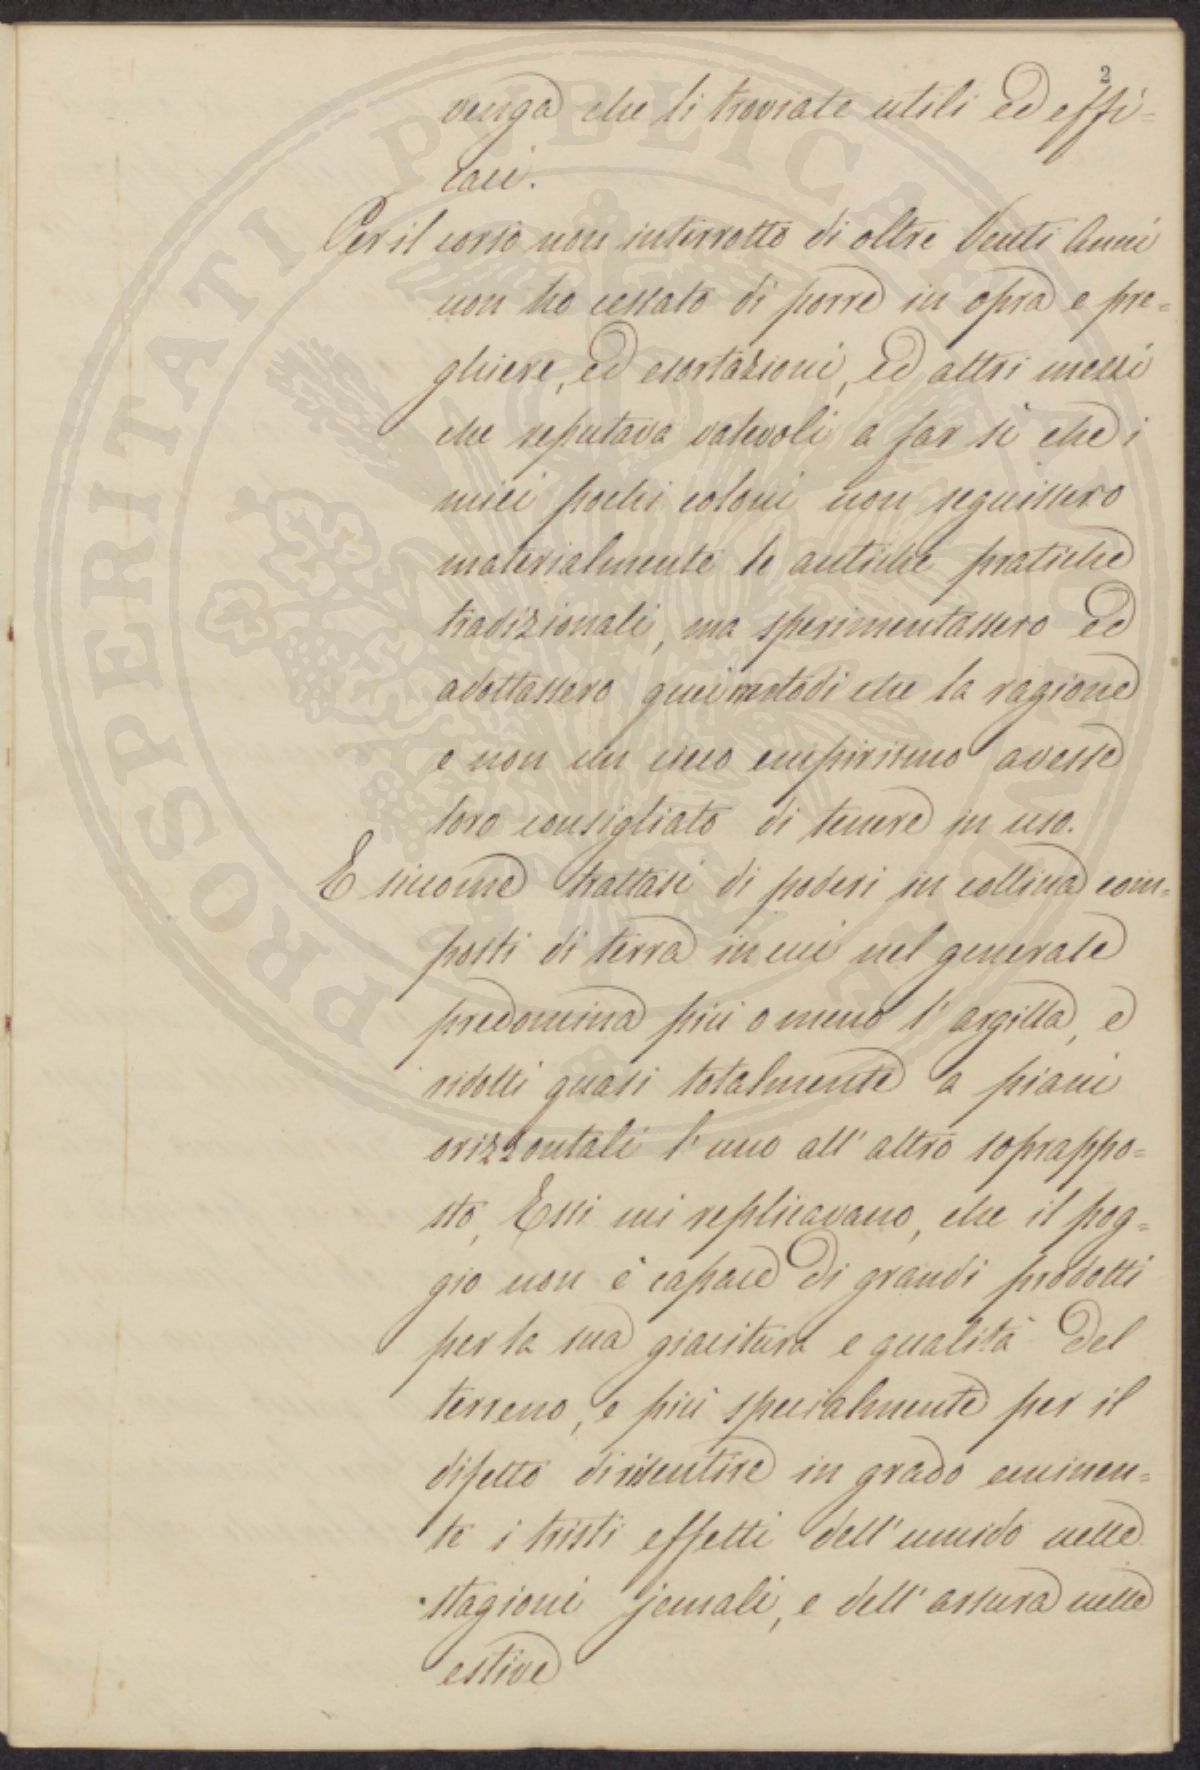 2
venga che li troviate utili ed effi=
caci.
Per il corso non interrotto di oltre Venti Anni
non ho cessato di porre in opra e pre=
ghiere, ed esortazioni, ed altri mezzi
che reputava valevoli a far sì che i
miei pochi coloni non seguissero
materialmente le antiche pratiche
tradizionali, ma sperimentassero ed
adottassero quei metodi che la ragione
e non un cieco empirismo avesse
loro consigliato di tenere in uso.
E siccome trattasi di poderi in collina com=
posti di terra in cui nel generale
predomina più o meno l'argilla, e
ridotti quasi totalmente a piani
orizzontali l'uno all'altro soprappo=
sto, Essi mi replicavano, che il pog=
gio non è capace di grandi prodotti
per la sua giacitura e qualità del
terreno, e più specialmente per il
difetto di risentire in grado eminen=
te i tristi effetti dell'umido nelle
stagioni jemali, e dell'arsura nelle
estive
PROSPERITATI PUBLICAE AUGENDAE